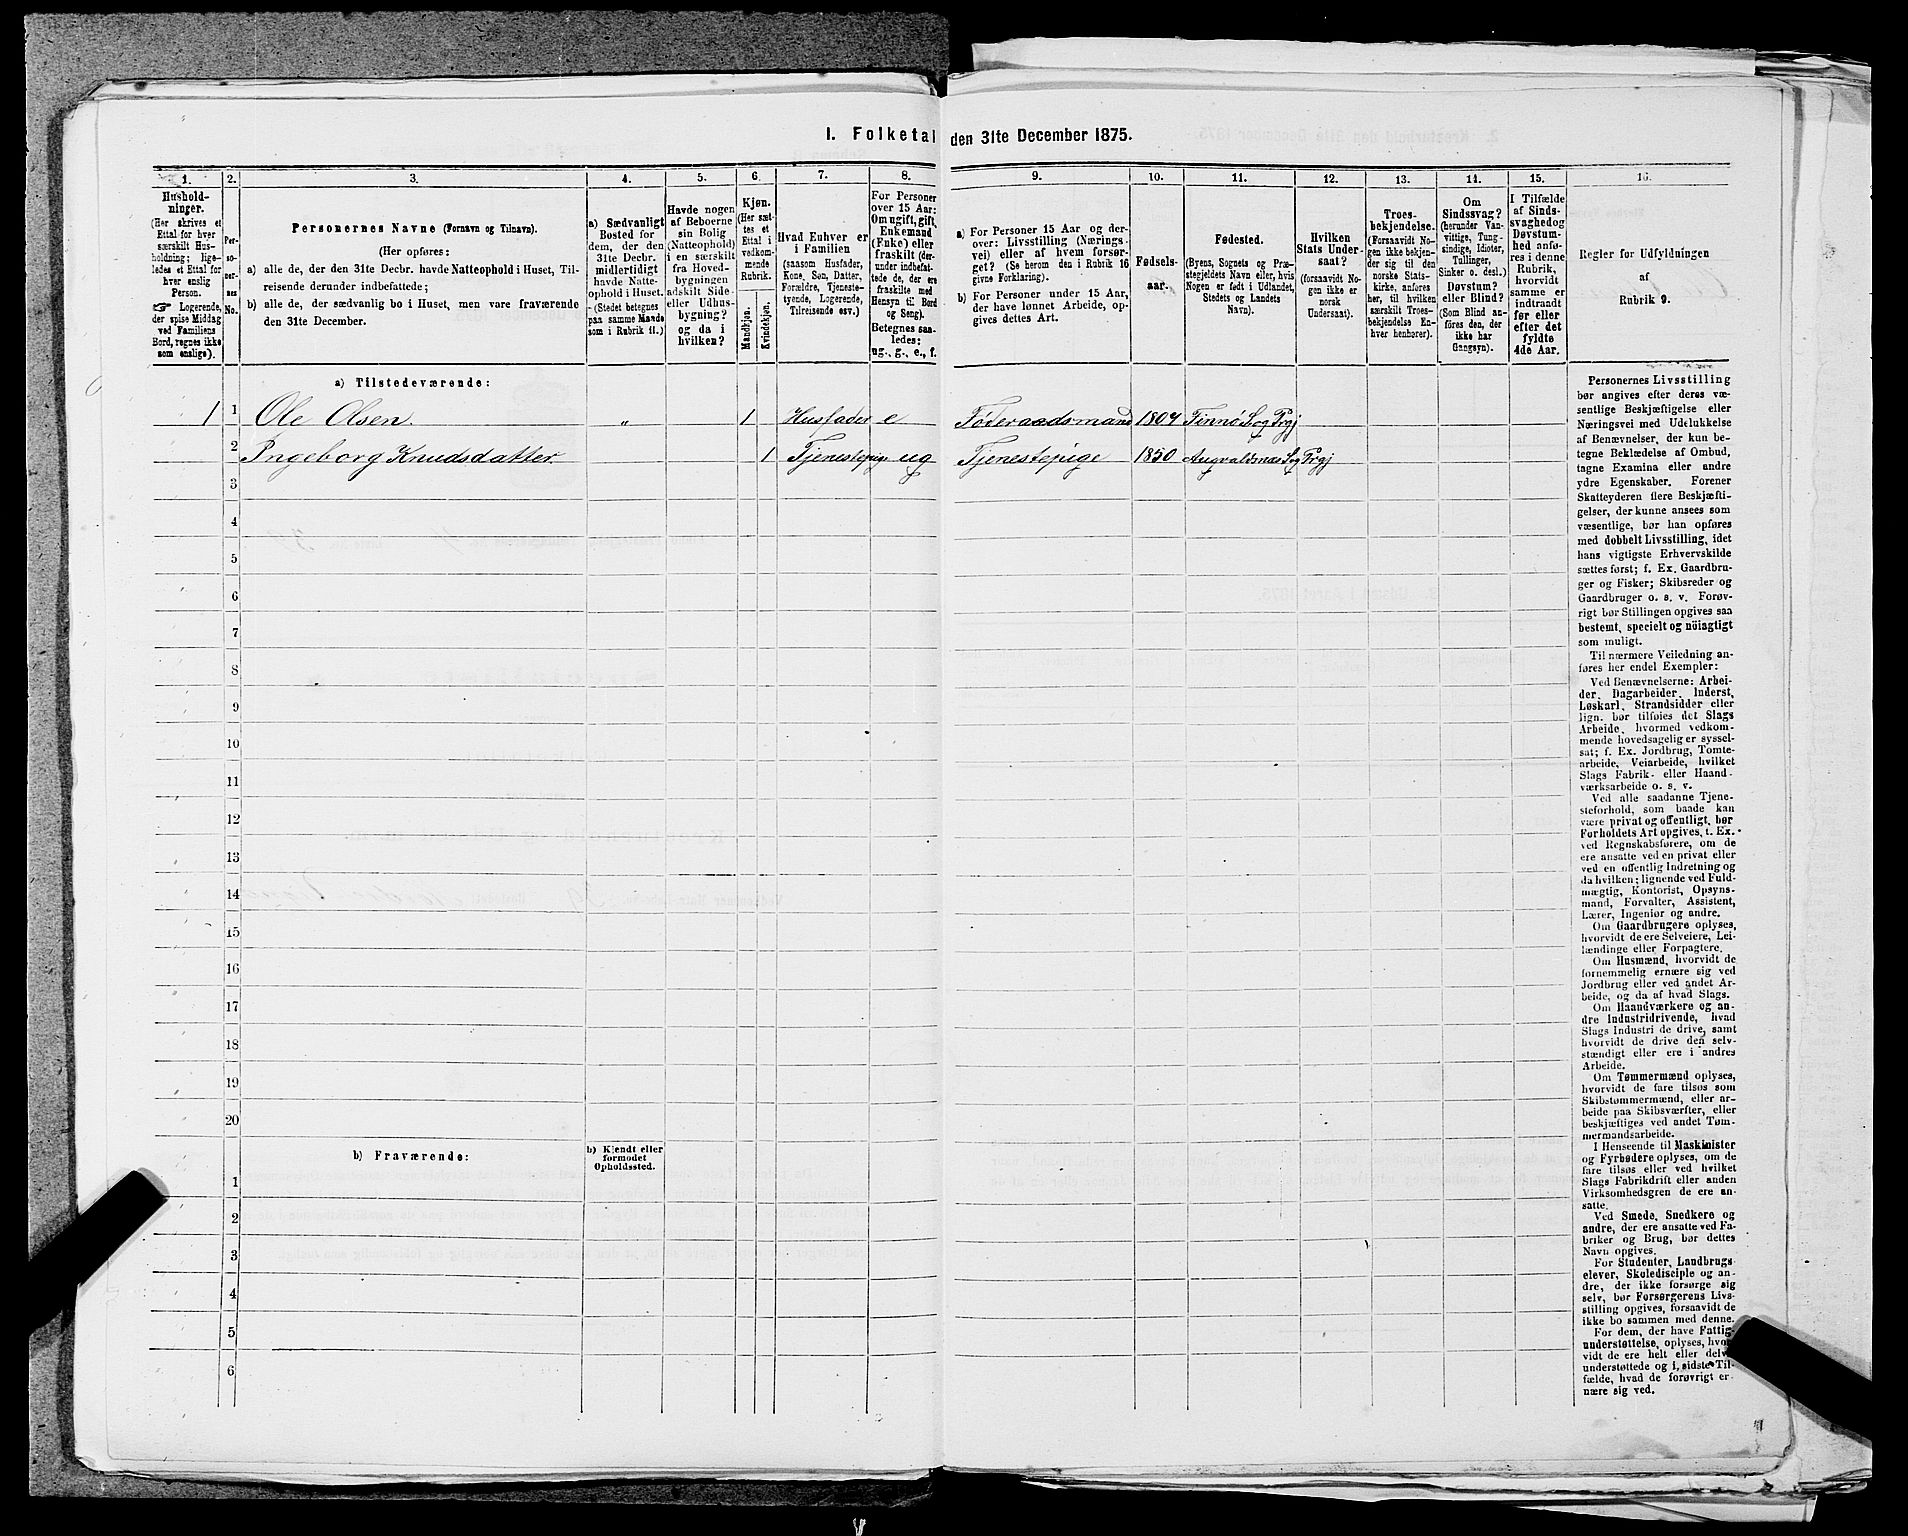 I. Folketal den 31te December 1875.
1.
Husholdninger.
(Her skrives et Ettal for hver særskilt Husholdning; ligeledes et Ettal for hver enslig Person.
☞ Logerende, der spise Middag ved Familiens Bord, regnes ikke som enslige).
2.
Personernes No.
3.
Personernes Navne (Fornavn og Tilnavn).
(Her opføres:
a) alle de, der den 31te Decbr. havde Natteophold i Huset, Tilreisende derunder indbefattede;
b) alle de, der sædvanlig bo i Huset, men vare fraværende den 31te December.
4.
a) Sædvanligt Bosted for dem, der den 31te Decbr. midlertidigt havde Natteophold i Huset. (Stedet betegnes paa samme Maade som i Rubrik 11.)
5.
Havde nogen af Beboerne sin Bolig (Natteophold) i en særskilt fra Hovedbygningen adskilt Side- eller Udhusbygning? og da i hvilken?
6.
Kjøn.
(Her sættes et Ettal i vedkommende Rubrik.
Mandkjøn.
Kvindekjøn.
7.
Hvad Enhver er i Familien
(saasom Husfader, Kone, Søn, Datter, Forældre, Tjenestetyende, Logerende, Tilreisende osv.)
8.
For Personer over 15 Aar: Om ugift, gift, Enkemand (Enke) eller fraskilt (derunder indbefattede de, der ere fraskilte med Hensyn til Bord og Seng).
Betegnes saaledes: ug., g., e., f.
9.
a) For Personer 15 Aar og derover: Livsstilling (Næringsvei) eller af hvem forsørget? (Se herom den i Rubrik 16 givne Forklaring).
b) For Personer under 15 Aar, der have lønnet Arbeide, opgives dettes Art.
10.
Fødselsaar.
11.
Fødested.
(Byens, Sognets og Præstegjeldets Navn eller, hvis Nogen er født i Udlandet, Stedets og Landets Navn).
12.
Hvilken Stats Undersaat?
(forsaavidt Nogen ikke er norsk Undersaat).
13.
Troesbekjendelse.
(Forsaavidt Nogen ikke bekjender sig til den norske Statskirke, anføres her, til hvilken særskilt Troesbekjendelse Enhver henhører).
14.
Om Sindssvag? (herunder Vanvittige, Tungsindige, Idioter, Tullinger, Sinker o. desl.) Døvstum? eller Blind? (Som Blind anføres den, der ikke har Gangsyn).
15.
I Tilfælde af Sindssvaghed og Døvstumhed anføres i denne Rubrik, hvorvidt samme er indtraadt før eller efter det fyldte 4de Aar.
16.
Regler for Udfyldningen af Rubrik 9.
a) Tilstedeværende:
1 1 Ole Olsen. „ 1 Husfader e Føderaadsmand 1804 Finnö Sog Prgj
2 Ingeborg Knudsdatter. 1 Tjenestepige ug Tjenestepige 1850 Augvaldnæs Sog Prgj
3
4
5
6
7
8
9
10
11
12
13
14
15
16
17
18
19
20
b) Fraværende:
b) Kjendt eller formodet Opholdssted.
1
2
3
4
5
6
Personernes Livsstilling
bør angives efter deres væ-
sentlige Beskjæftigelse eller
Næringsvei med Udelukkelse
af Benævnelser, der kun be-
tegne Beklædelse af Ombud,
tagne Examina eller andre
ydre Egenskaber. Forener
Skatteyderen flere Beskjæfti-
gelser, der kunne ansees som
væsentlige, bør han opføres
med dobbelt Livsstilling, idet
hans vigtigste Erhvervskilde
sættes først; f. Ex. Gaardbru-
ger og Fisker; Skibsreder og
Gaardbruger o. s. v. Forøv-
rigt bør Stillingen opgives saa
bestemt, specielt og nöiagtigt
som muligt.
Til nærmere Veiledning an-
føres her endel Exempler:
Ved Benævnelserne: Arbei-
der, Dagarbeider, Inderst,
Løskarl, Strandsidder eller
lign. bør tilføies det Slags
Arbeide, hvormed vedkom-
mende hovedsagelig er syssel-
sat; f. Ex. Jordbrug, Tomte-
arbeide, Veiarbeide, hvilket
Slags Fabrik- eller Haand-
værksarbeide o. s. v.
Ved alle saadanne Tjene-
steforhold, som baade kan
være privat og offentligt, bør
Forholdets Art opgives, t. Ex.
ved Regnskabsførere, om de
ere ansatte ved en privat eller
ved en offentlig Indretning og
da hvilken; lignende ved Fuld-
mægtig, Kontorist, Opsyns-
mand, Forvalter, Assistent,
Lærer, Ingeniør og andre.
Om Gaardbrugere oplyses,
hvorvidt de ere Selveiere, Lei-
lændinge eller Forpagtere.
Om Husmænd, hvorvidt de
fornemmelig ernære sig ved
Jordbrug eller ved andet Ar-
beide, og da af hvad Slags.
Om Haandværkere og an-
dre Industridrivende, hvad
Slags Industri de drive, samt
hvorvidt de drive den selv-
stændigt eller ere i andres
Arbeide.
Om Tømmermænd oplyses,
hvorvidt de fare tilsøs som
Skibstømmermænd, eller ar-
beide paa Skibsværfter, eller
beskjæftiges ved andet Tøm-
mermandsarbeide.
I Henseende til Maskinister
og Fyrbødere oplyses, om de
fare tilsøs eller ved hvilket
Slags Fabrikdrift eller anden
Virksomhedsgren de ere an-
satte.
Ved Smede, Snedkere og
andre, der ere ansatte ved Fa-
briker og Brug, bør dettes
Navn opgives.
For Studenter, Landbrugs
elever, Skoledisciple og an-
dre, der ikke forsørge sig
selv, bør Forsørgerens Livs-
stilling opgives, forsaavidt de
ikke bo sammen med denne.
For dem, der have Fattig-
understøttelse, oplyses, hvor-
vidt de ere helt eller delvis
understøttede og i sidste Til-
fælde, hvad de forøvrigt er-
nære sig ved.